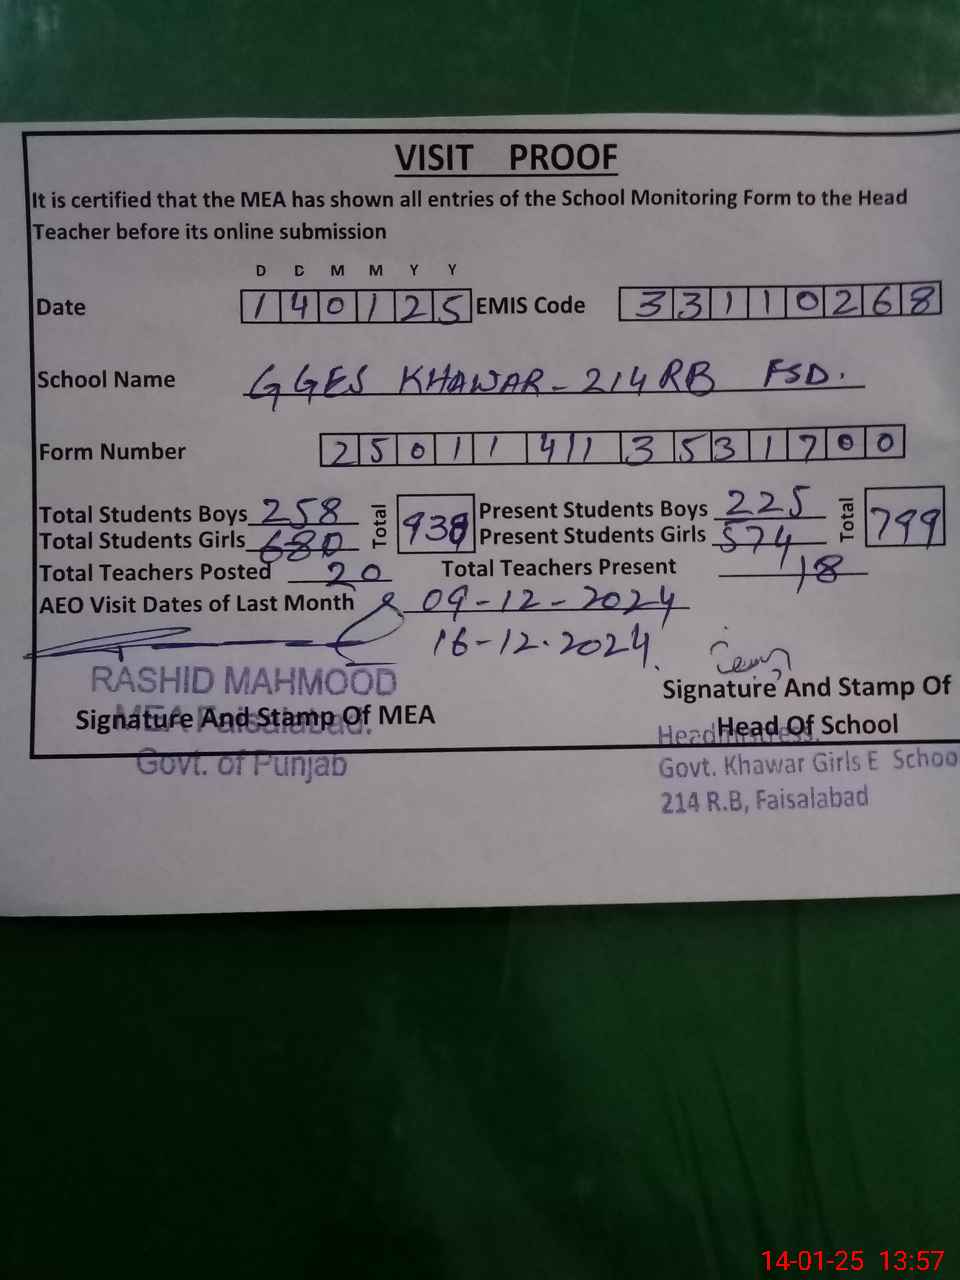 VISIT PROOF
It is certified that the MEA has shown all entries of the School Monitoring Form to the Head
Teacher before its online submission
D D M M Y Y
Date 1 4 0 1 2 5 EMIS Code 3 3 1 1 0 2 6 8
School Name GGES KHAWAR - 214 RB FSD.
Form Number 2 5 0 1 1 4 1 1 3 5 3 1 7 0 0
Total Students Boys 258 Total 938 Present Students Boys 225 Total 799
Total Students Girls 680 Present Students Girls 574
Total Teachers Posted 20 Total Teachers Present 18
AEO Visit Dates of Last Month 09-12-2024
16-12-2024
RASHID MAHMOOD
Signature And Stamp Of MEA
MEA Faisalabad.
Govt. of Punjab
Signature And Stamp Of
Head Of School
Headmistress.
Govt. Khawar Girls E Schoo
214 R.B, Faisalabad
14-01-25 13:57